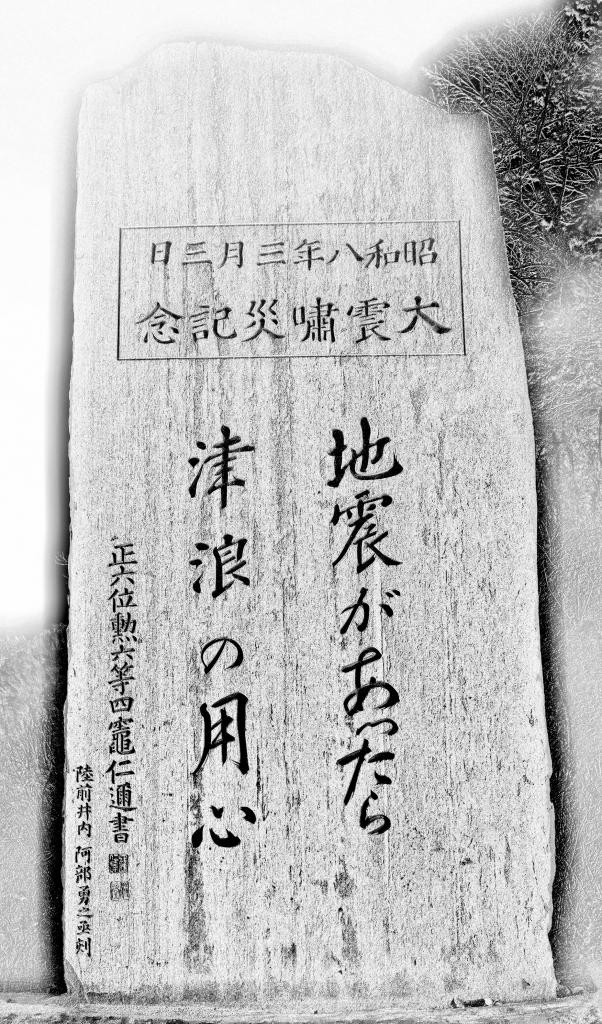 昭和八年三月三日
大震嘯災記念
地震があったら
津浪の用心
正六位勲六等四竈仁邇書
陸前井内 阿部勇之丞刻